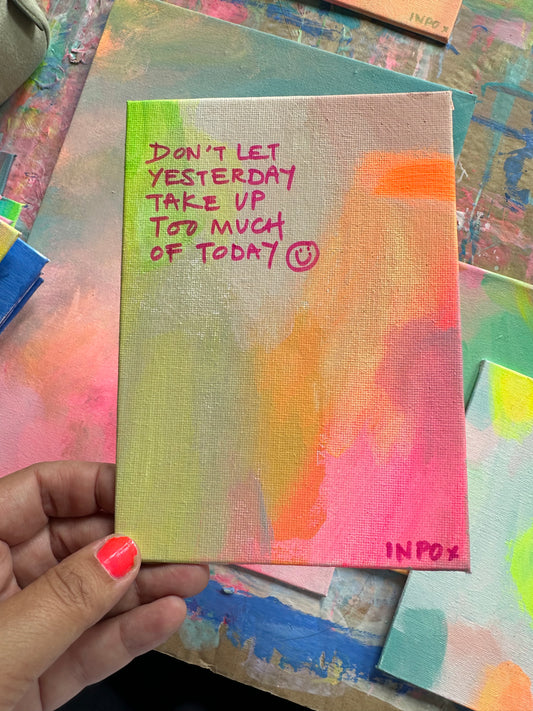 INPOx
DON'T LET
YESTERDAY
TAKE UP
TOO MUCH
OF TODAY
INPOx